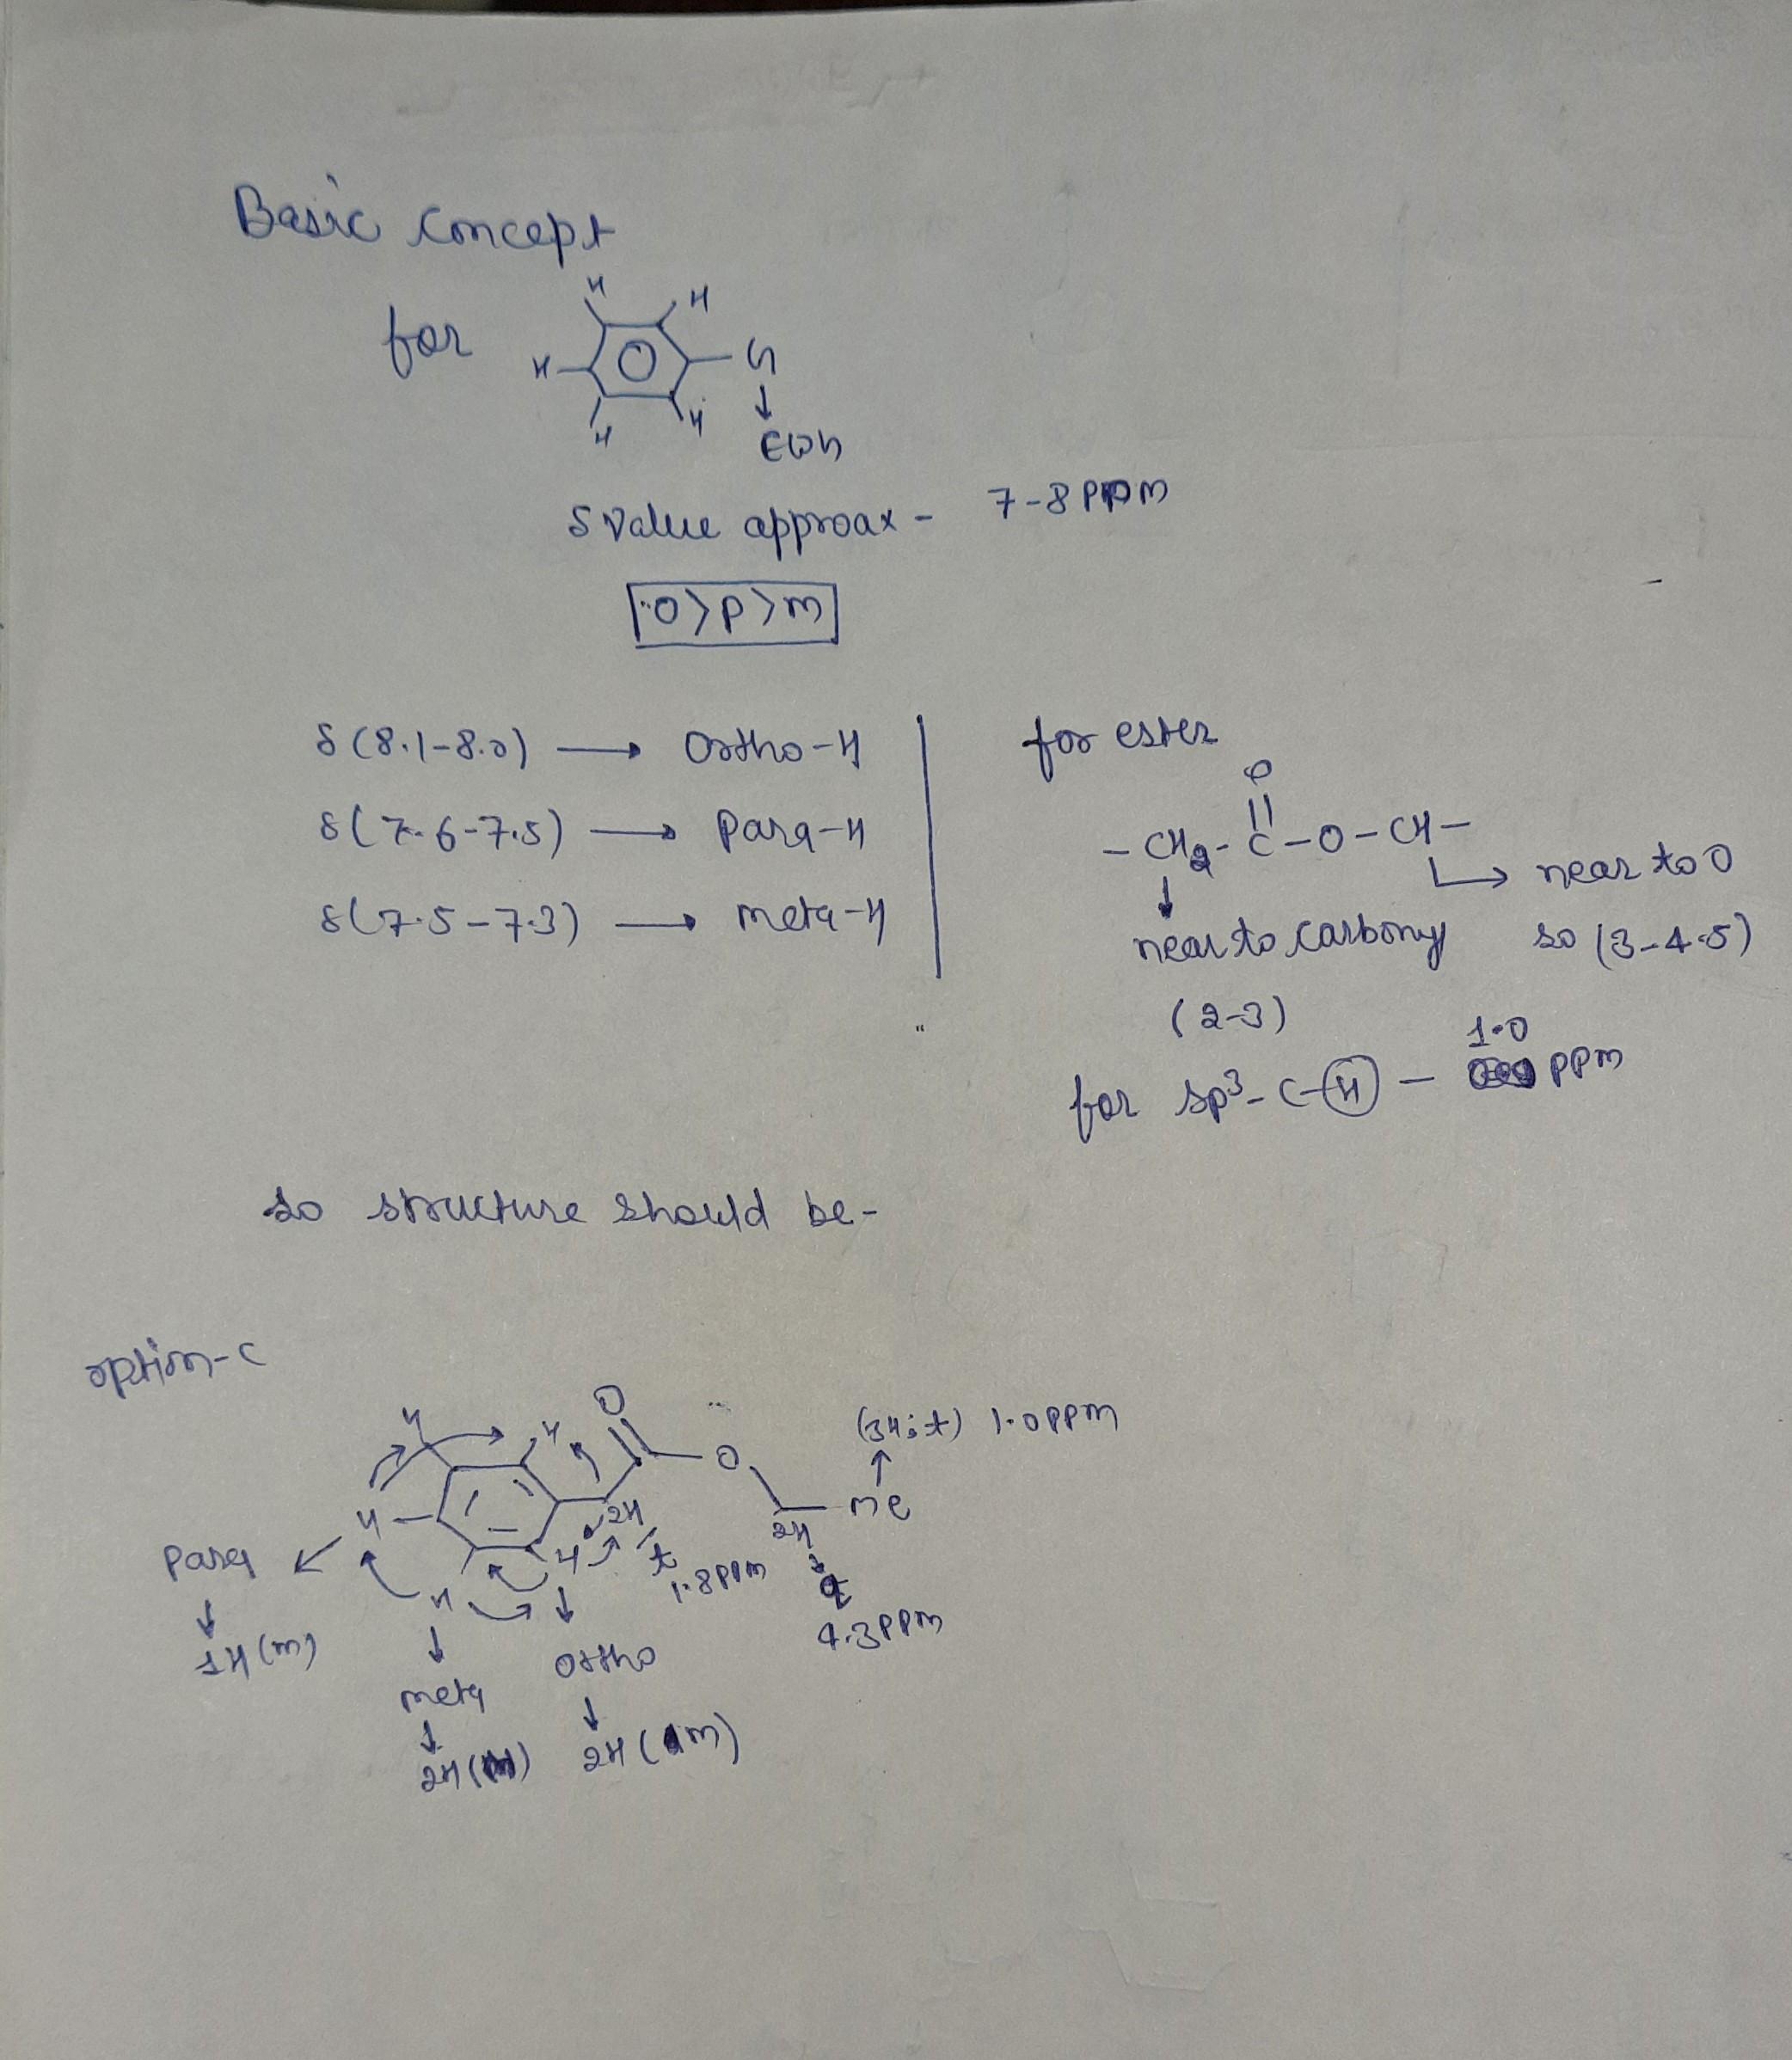 Basic concept
for
H H
H G
H H ↓
EWG
δ value approax - 7-8 PPM
O>P>m
δ(8.1-8.0) → Ortho-H
δ(7.6-7.5) → Para-H
δ(7.5-7.3) → meta-H
for ester
O
- CH2 - C - O - CH -
↓ → near to O
near to carbony so (3-4.5)
(2-3)
1.0
for sp3- C-H - ppm
so structure should be-
option-c
O
H H O (3H;t) 1.0 PPM
H 2H 2H me
Para H t q
1.8 PPM 4.3 PPM
1H (m) H
meta Ortho
2H (m) 2H (m)